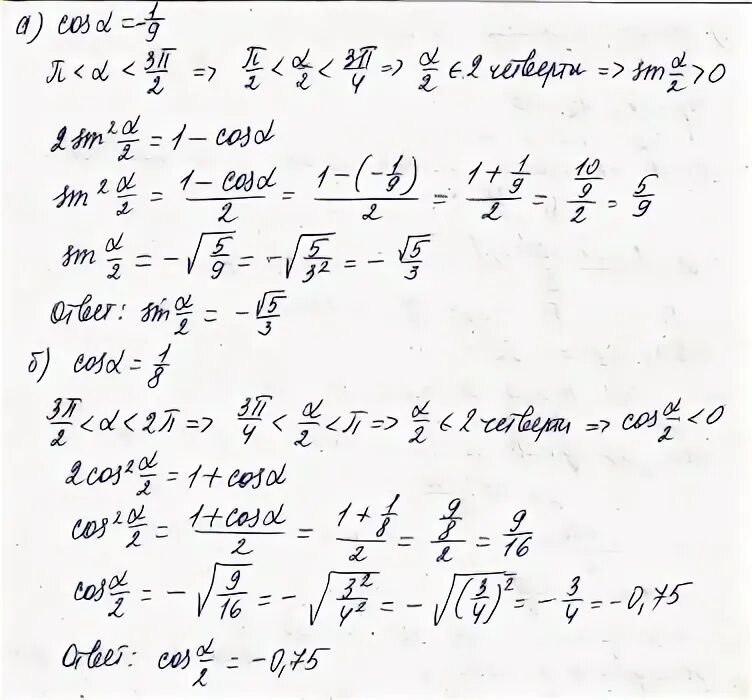 а) cosα = -1/9
π < α < 3π/2 => π/2 < α/2 < 3π/4 => α/2 ∈ 2 четверти => sin α/2 > 0
2 sin² α/2 = 1 - cosα
sin² α/2 = (1 - cosα)/2 = (1 - (-1/9))/2 = (1 + 1/9)/2 = (10/9)/2 = 5/9
sin α/2 = -√(5/9) = -√(5/3²) = - √5/3
Ответ: sin α/2 = - √5/3
б) cosα = 1/8
3π/2 < α < 2π => 3π/4 < α/2 < π => α/2 ∈ 2 четверти => cos α/2 < 0
2 cos² α/2 = 1 + cosα
cos² α/2 = (1 + cosα)/2 = (1 + 1/8)/2 = (9/8)/2 = 9/16
cos α/2 = -√(9/16) = -√(3²/4²) = -√((3/4)²) = -3/4 = -0,75
Ответ: cos α/2 = -0,75